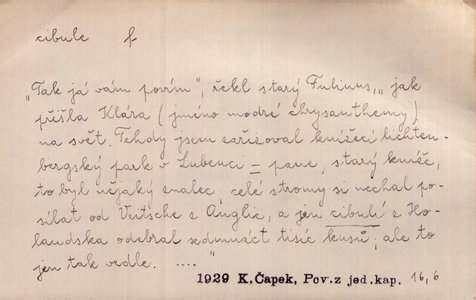 cibule f
„Tak já vám povím", řekl starý Fulinus, „jak
přišla Klára (jméno modré chrysanthemy)
na svět. Tehdy jsem zařizoval knížecí lichten-
bergský park v Lubenci = pane, starý kníže,
to byl nějaký znalec. celé stromy si nechal po-
sílat od Veitsche z Anglie, a jen cibulí z Ho-
landska odebral sedmnáct tisíc kusů; ale to
jen tak vedle. ...."
1929 K.Čapek, Pov.z jed.kap. 16,6